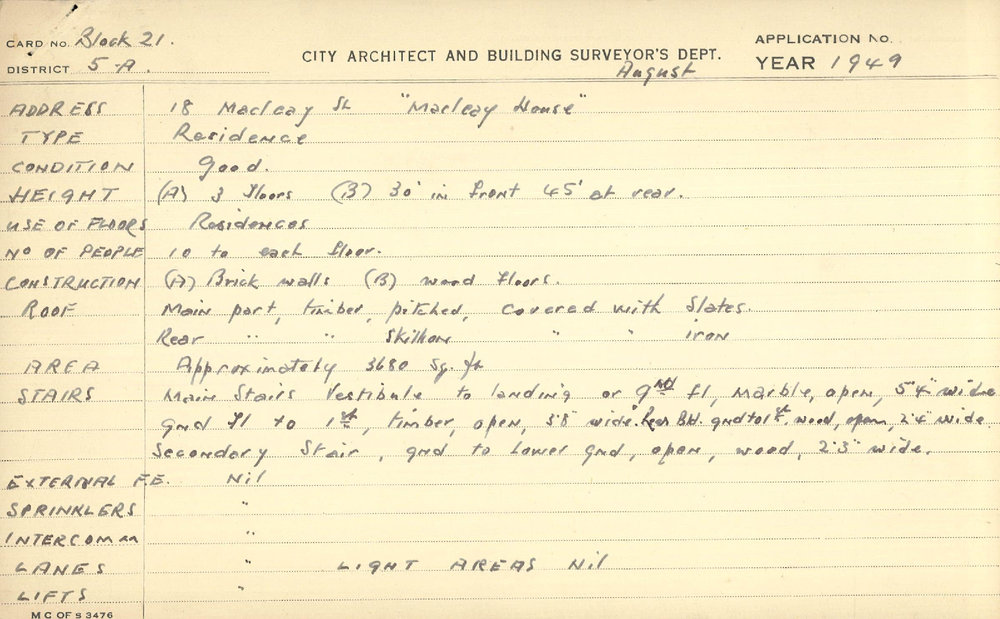 CARD NO. Block 21.
DISTRICT 5-A.
CITY ARCHITECT AND BUILDING SURVEYOR'S DEPT.
August
APPLICATION NO.
YEAR 1949
ADDRESS 18 Macleay St "Macleay House"
TYPE Residence
CONDITION Good.
HEIGHT (A) 3 floors (B) 30' in front 45' at rear.
USE OF FLOORS Residences
NO OF PEOPLE 10 to each floor.
CONSTRUCTION (A) Brick walls (B) wood floors.
ROOF Main part, timber, pitched, covered with Slates.
Rear " " Skillion " " iron
AREA Approximately 3680 Sq. ft
STAIRS Main Stairs Vestibule to landing or Gnd fl, marble, open, 5'4" wide
Gnd Fl to 1st, timber, open, 5'8" wide. Rear Bld. gnd to 1st. wood, open, 2'4" wide
Secondary Stair, gnd to Lower Gnd, open, wood, 2'3" wide.
EXTERNAL F.E. Nil
SPRINKLERS "
INTERCOMM "
LANES " LIGHT AREAS Nil
LIFTS "
M C OF S 3476